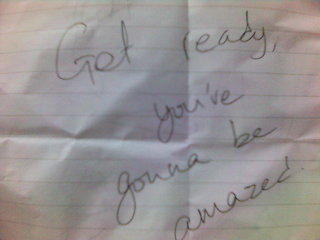 Get ready,
you've
gonna be
amazed.